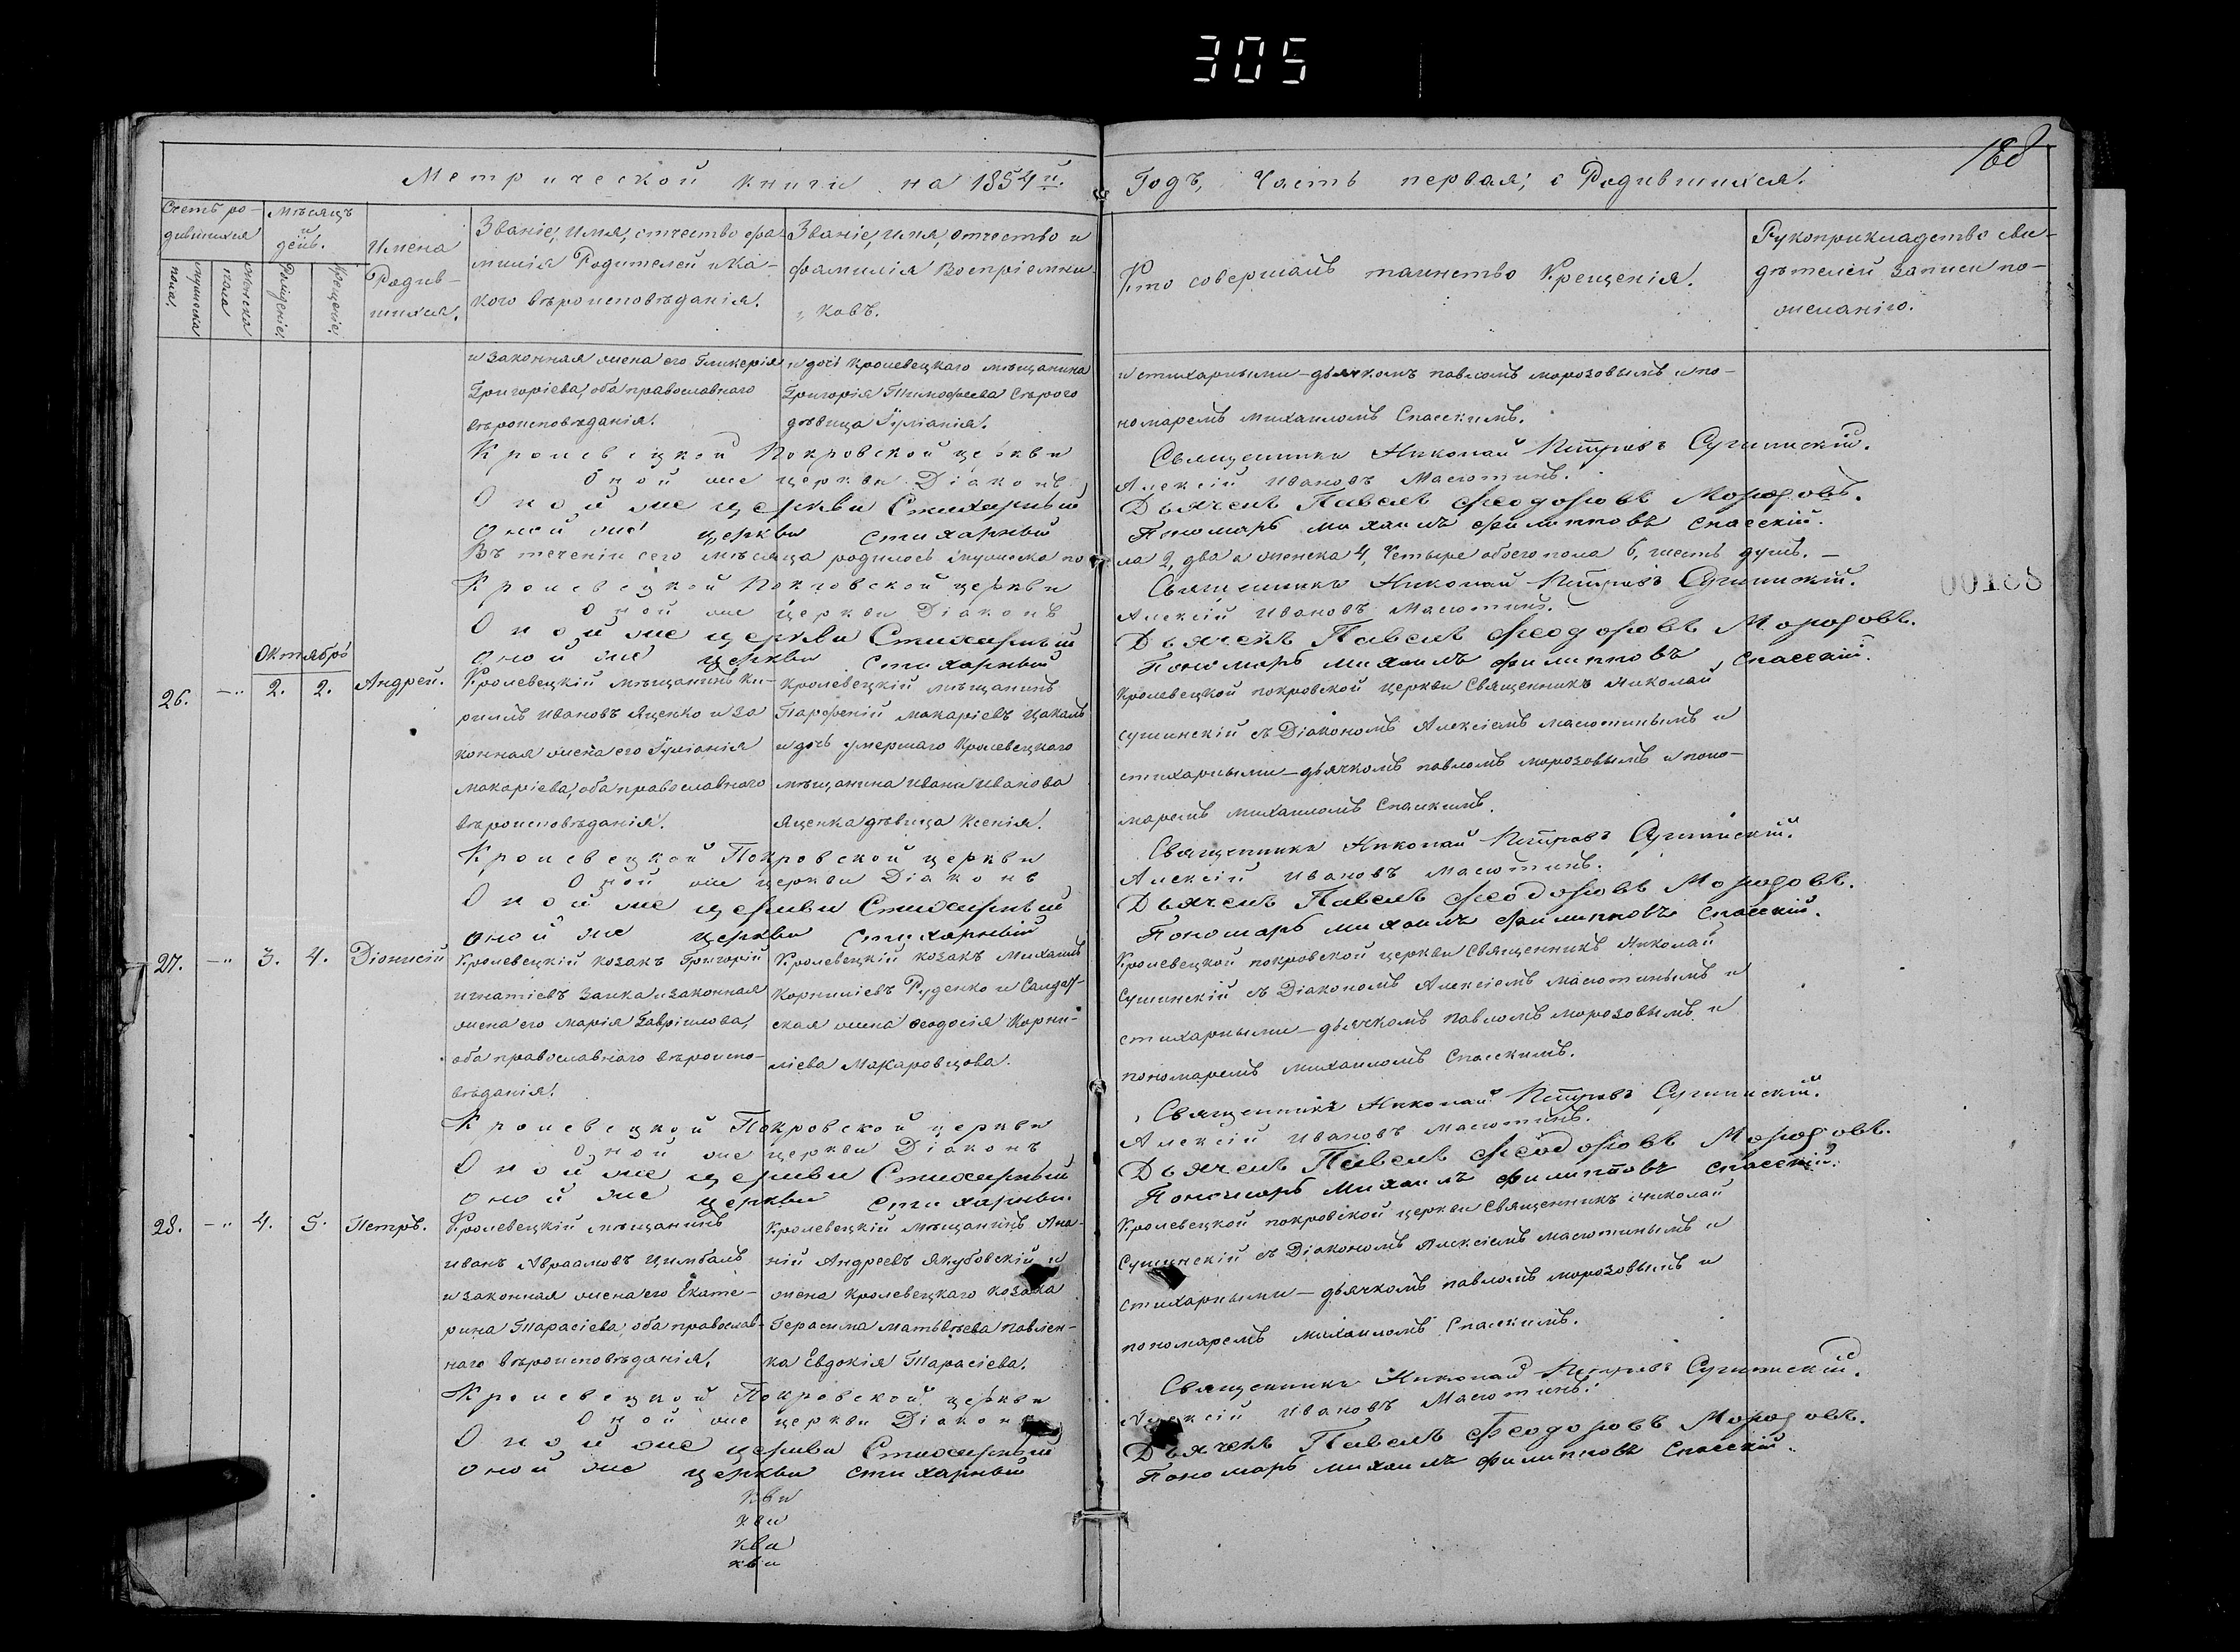 305
188
Метрической книги на 1854й.
Годъ, Часть первая, о Родившихся.
Счетъ ро-
дившихся
мужеска
пола.
женска
пола
Мѣсяцъ
и
день.
Рожденіе.
Крещеніе.
Имена
Родив-
шихся.
Званіе, имя, отчество фа-
милія Родителей и ка-
кого вѣроисповѣданія.
Званіе, имя, отчество и
фамилія Воспріемни-
ковъ.
Кто совершалъ таинство Крещенія.
Рукоприкладство сви-
дѣтелей записи по-
желанію.
и законная жена его Гликерія
Григоріева, оба православнаго
вѣроисповѣданія.
и дочь кролевецкаго мѣщанина
Григорія Тимофеева Сѣрого
дѣвица Іуліанія.
и стихарными - дьячкомъ павломъ морозовымъ и по-
номаремъ михаиломъ Спасскимъ.
Кролевецкой Покровской церкви Священникъ Николай Петровъ Сушинскій.
Оной же церкви Діаконъ Алексій Ивановъ Масютинъ.
Оной же церкви Стихарный Дьячекъ Павелъ Феодоровъ Морозовъ.
Оной же церкви стихарный Пономарь михаилъ филипповъ спасскій.
Въ теченіи сего мѣсяца родилось мужеска по-
ла 2, два а женска 4, Четыре обоего пола 6, шесть душъ. —
Кролевецкой Покровской церкви Священникъ Николай Петровъ Сушинскій.
Оной же церкви Діаконъ Алексій Ивановъ Масютинъ.
Оной же церкви Стихарный Дьячекъ Павелъ Феодоровъ Морозовъ.
Оной же церкви стихарный Пономарь михаилъ филипповъ спасскій.
00188
Октябрь
26. —„ 2. 2. Андрей.
Кролевецкій мѣщанинъ Ки-
рилъ Ивановъ Яценко и за
конная жена его Іуліанія
макаріева, оба православнаго
вѣроисповѣданія.
Кролевецкій мѣщанинъ
Парфеній макаріевъ Цакалъ
и дочь умершаго Кролевецкаго
мѣщанина Ивана Иванова
Яценка дѣвица Ксенія.
Кролевецкой покровской церкви Священникъ Николай
сушинскій съ Діакономъ Алексіемъ масютинымъ и
стихарными - дьячкомъ павломъ морозовымъ и поно-
маремъ михаиломъ Спасскимъ.
Кролевецкой Покровской церкви Священникъ Николай Петровъ Сушинскій.
Оной же церкви Діаконъ Алексій Ивановъ Масютинъ.
Оной же церкви Стихарный Дьячекъ Павелъ Феодоровъ Морозовъ.
оной же церкви стихарный Пономарь михаилъ филипповъ спасскій.
27. —„ 3. 4. Діонисій
Кролевецкій козакъ Григорій
игнатіевъ Заика и законная
жена его Марія Гавріилова,
оба православнаго вѣроиспо-
вѣданія.
Кролевецкій козакъ Михаилъ
Корниліевъ Руденко и Салдат-
ская жена Феодосія Корни-
ліева Макаровцова.
Кролевецкой покровской церкви Священникъ Николай
Сушинскій съ Діакономъ Алексіемъ масютинымъ и
стихарными - дьячкомъ павломъ морозовымъ и
пономаремъ михаиломъ Спасскимъ.
Кролевецкой Покровской церкви Священникъ Николай Петровъ Сушинскій.
Оной же церкви Діаконъ Алексій Ивановъ Масютинъ.
Оной же церкви Стихарный Дьячекъ Павелъ Феодоровъ Морозовъ.
оной же церкви стихарный Пономарь михаилъ филипповъ спасскій.
28. —„ 4. 5. Петръ.
Кролевецкій мѣщанинъ
иванъ Авраамовъ Цимбалъ
и законная жена его Екате-
рина Тарасіева, оба православ-
наго вѣроисповѣданія.
Кролевецкій мѣщанинъ Ана-
ній Андреевъ Якубовскій и
жена Кролевецкаго козака
Герасима матвѣева павлен-
ка Евдокія Тарасіева.
Кролевецкой покровской церкви Священникъ Николай
Сушинскій съ Діакономъ Алексіемъ масютинымъ и
стихарными - дьячкомъ павломъ морозовымъ и
пономаремъ михаиломъ Спасскимъ.
Кролевецкой Покровской церкви Священникъ Николай Петровъ Сушинскій.
Оной же церкви Діаконъ Алексій Ивановъ Масютинъ.
Оной же церкви Стихарный Дьячекъ Павелъ Феодоровъ Морозовъ.
оной же церкви стихарный Пономарь михаилъ филипповъ спасскій.
кви
кви
кви
кви